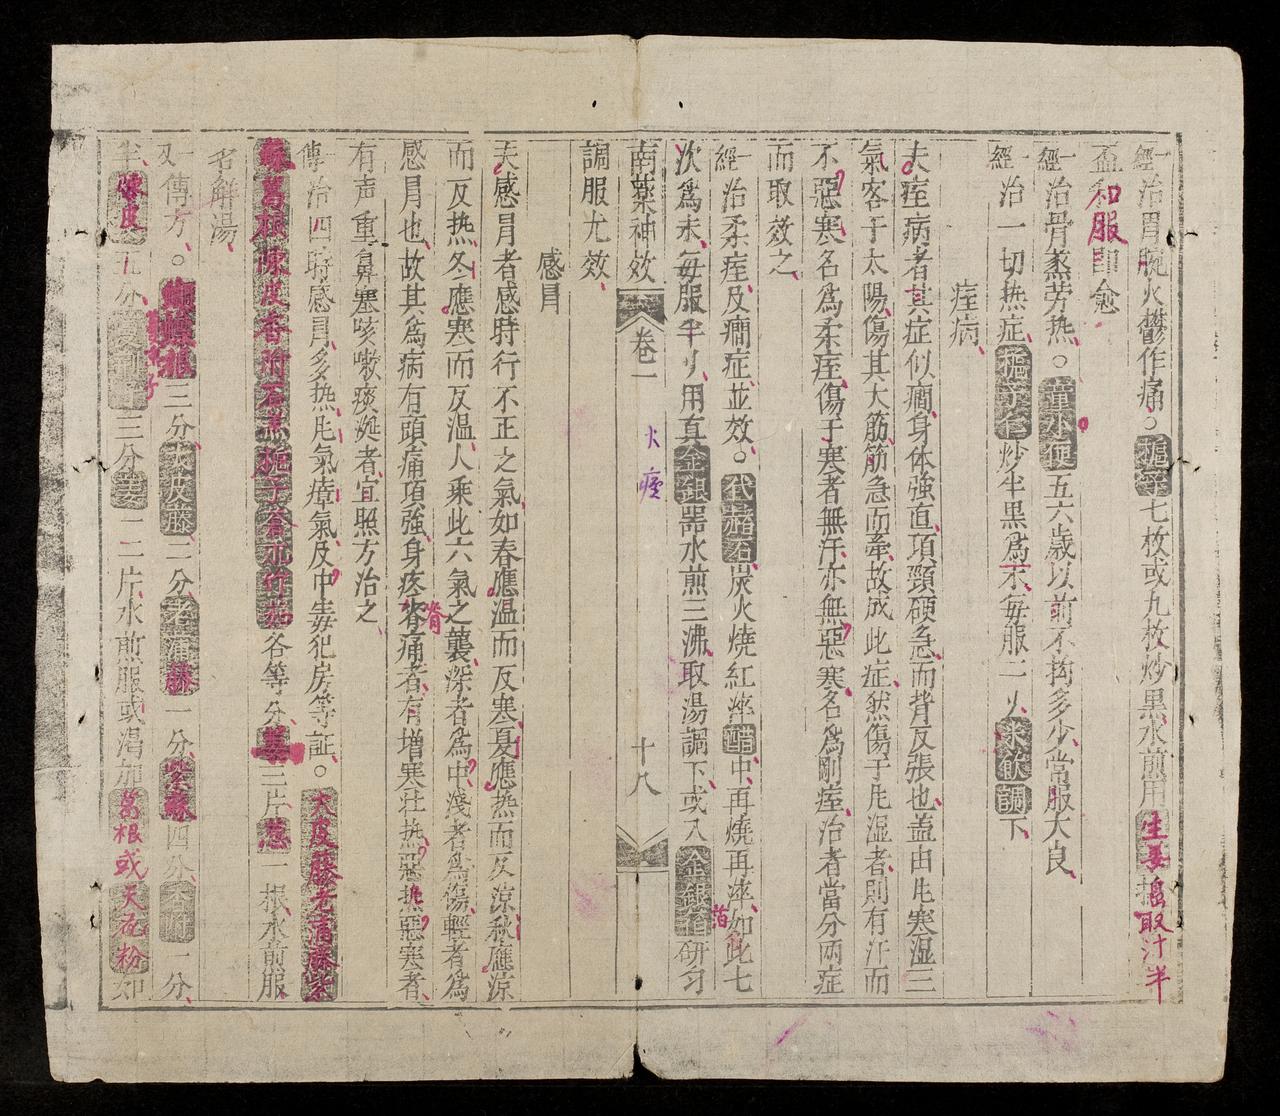 一經治胃腕火鬱作痛。梔子七枚或九枚炒黑水煎用生姜搗取汁半
盃和服即愈
一經治骨蒸劳热。童水便五六歲以前不拘多少常服大良
一經治一切热症梔子仁炒半黑為末每服二刂求飲調下
痓病
夫痓病者其症似癇身体強直項頸硬急而背反張也盖由凡寒湿三
氣客于太陽傷其大筋筋急而牽故成此症然傷于凡湿者則有汗而
不惡寒名為柔痓傷于寒者無汗亦無惡寒名為剛痓治者當分兩症
而取效之
一經治柔痓及癇症並效。代赭石炭火燒紅淬醋中再燒再淬如此七
次為末每服半刂用真金銀噐水煎三沸取湯調下或入金銀箔研匀
箔
南藥神效 卷二 十八
火痓
調服尤效
感冐
夫感冐者感時行不正之氣如春應温而反寒夏應热而反凉秋應凉
而反热冬應寒而反温人乘此六氣之襲深者為中淺者為傷輕者為
感冐也故其為病有頭痛項強身疼脊痛者有增寒壮热惡热惡寒者
脊
有声重鼻塞咳嗽痰涎者宜照方治之
傳治四時感冐多热凡氣瘴氣及中毒犯房等証。大皮藤老蒲藤紫
蘇葛根陳皮香附石羔梔子蒼朮竹茹各等分姜三片葱一根水煎服
名解湯
又一傳方。三分大皮藤二分老蒲藤一分紫蘇四分香附一分
半陳皮五分三分姜二三片水煎服或渴加葛根或天花粉如